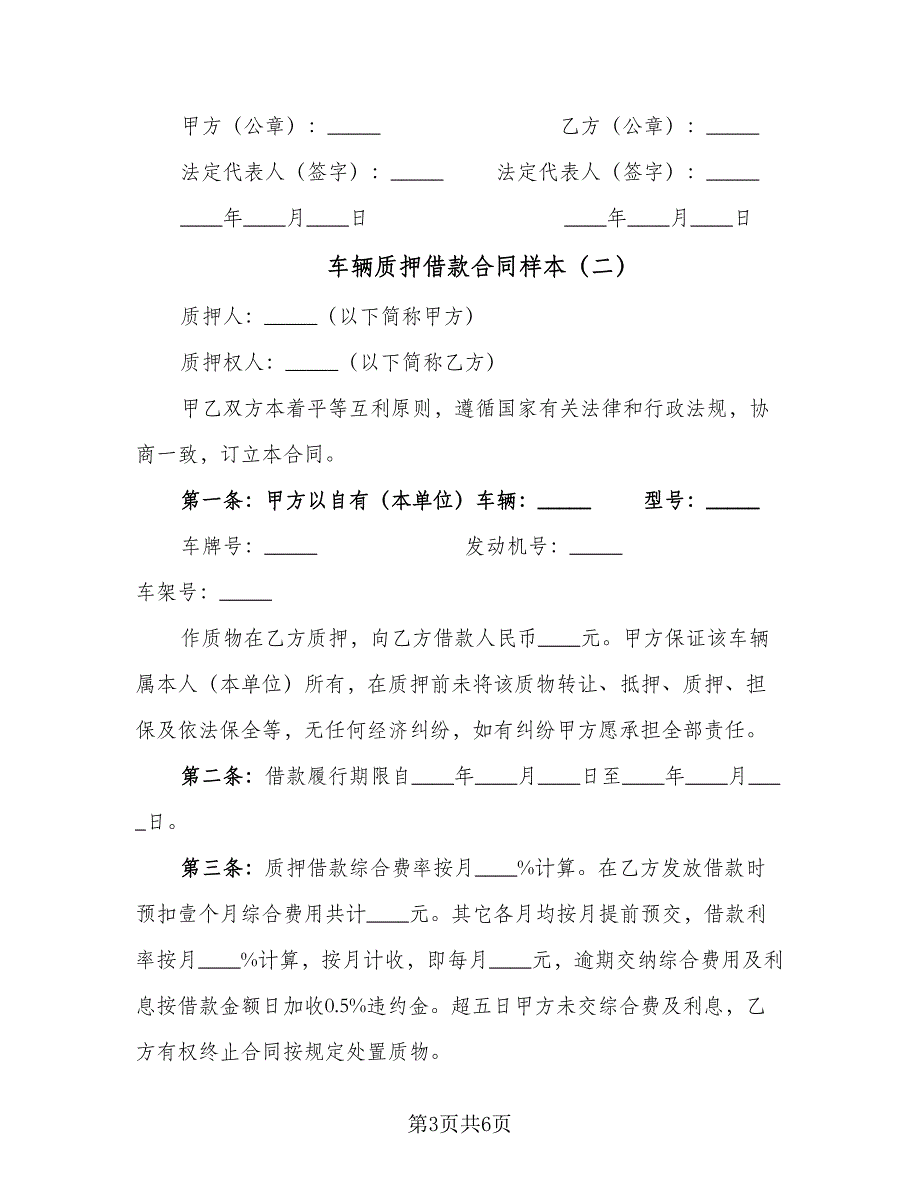 甲方（公章）：_____ 乙方（公章）：_____
法定代表人（签字）：_____ 法定代表人（签字）：_____
____年____月____日 ____年____月____日
车辆质押借款合同样本（二）
质押人：_____（以下简称甲方）
质押权人：_____（以下简称乙方）
甲乙双方本着平等互利原则，遵循国家有关法律和行政法规，协
商一致，订立本合同。
第一条：甲方以自有（本单位）车辆：_____ 型号：_____
车牌号：_____ 发动机号：_____
车架号：_____
作质物在乙方质押，向乙方借款人民币____元。甲方保证该车辆
属本人（本单位）所有，在质押前未将该质物转让、抵押、质押、担
保及依法保全等，无任何经济纠纷，如有纠纷甲方愿承担全部责任。
第二条：借款履行期限自____年____月____日至____年____月___
_日。
第三条：质押借款综合费率按月____%计算。在乙方发放借款时
预扣壹个月综合费用共计____元。其它各月均按月提前预交，借款利
率按月____%计算，按月计收，即每月____元，逾期交纳综合费用及利
息按借款金额日加收0.5%违约金。超五日甲方未交综合费及利息，乙
方有权终止合同按规定处置质物。
第3页共6页